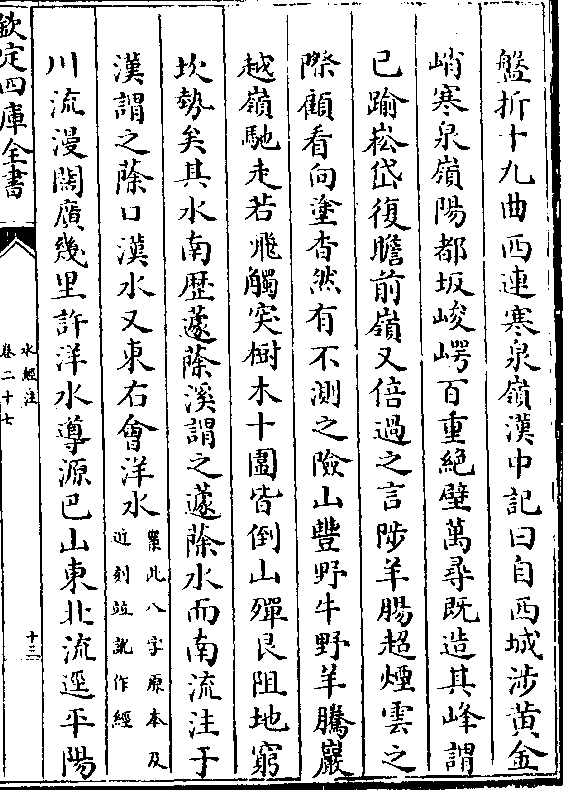 盤折十九曲西連寒泉嶺漢中記曰自西城涉黃金
峭寒泉嶺陽都坂峻崿百重絕壁萬尋既造其峰謂
已踰崧岱復瞻前嶺又倍過之言陟羊腸超煙雲之
際顧看向塗杳然有不測之險山豐野牛野羊騰巖
越嶺馳走若飛觸突樹木十圍皆倒山殫艮阻地窮
坎勢矣其水南歴蘧蒢溪謂之蘧蒢水而南流注于
漢謂之蒢口漢水又東右會洋水
案此八字原本及
近刻竝訛作經
川流漫闊廣幾里許洋水導源巴山東北流逕平陽
欽定四庫全書
水經注
卷二十七
十三